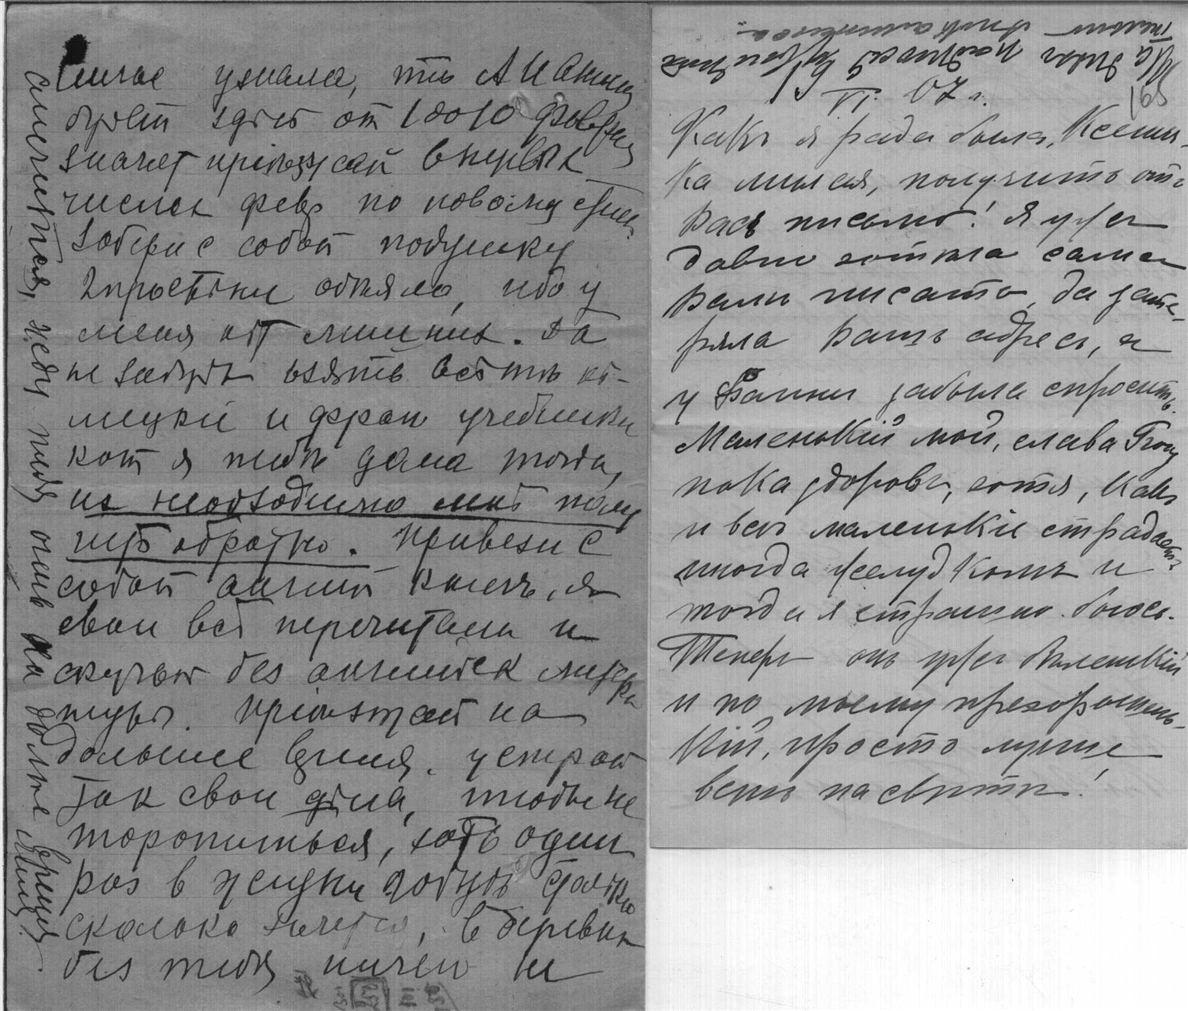 сейчас узнала, что
будет здесь от 1 до 10 февраля
значит приезжай в первых
числах февр по новому стилю.
Забери с собой подушку
2 простыни одеяло, ибо у
меня нет лишних. Да
не забудь взять все те не-
мецкiй и фран учебники
кот я тебе дала тогда,
их необходимо мне полу
чить обратно. Привези с
собой англiй книгъ, я
свои всѣ перечитала и
скучаю без английск литера
туры. Прiезжай на
большее время. устрой
так свои дѣла, чтобы не
торопиться, хоть один
раз в жизни побудь столько
сколько хочется, в деревне
без тебя ничего не
случится, жду тебя очень на долгое время
VI. 07 г.
165
Какъ я рада была, Ксень-
ка милая, получить отъ
Васъ письмо! Я уже
давно хотѣла сама
Вамъ писать, да зате-
ряла Вашъ адресъ, а
у забыла спросить.
Маленькiй мой, слава Богу
пока здоровъ, хотя, какъ
и всѣ маленькiе страдаетъ
иногда желудкомъ и
тогда я страшно боюсь.
Теперь онъ уже большой
и по моему прехорошень-
кiй, просто лучше
всехъ на свѣтѣ!